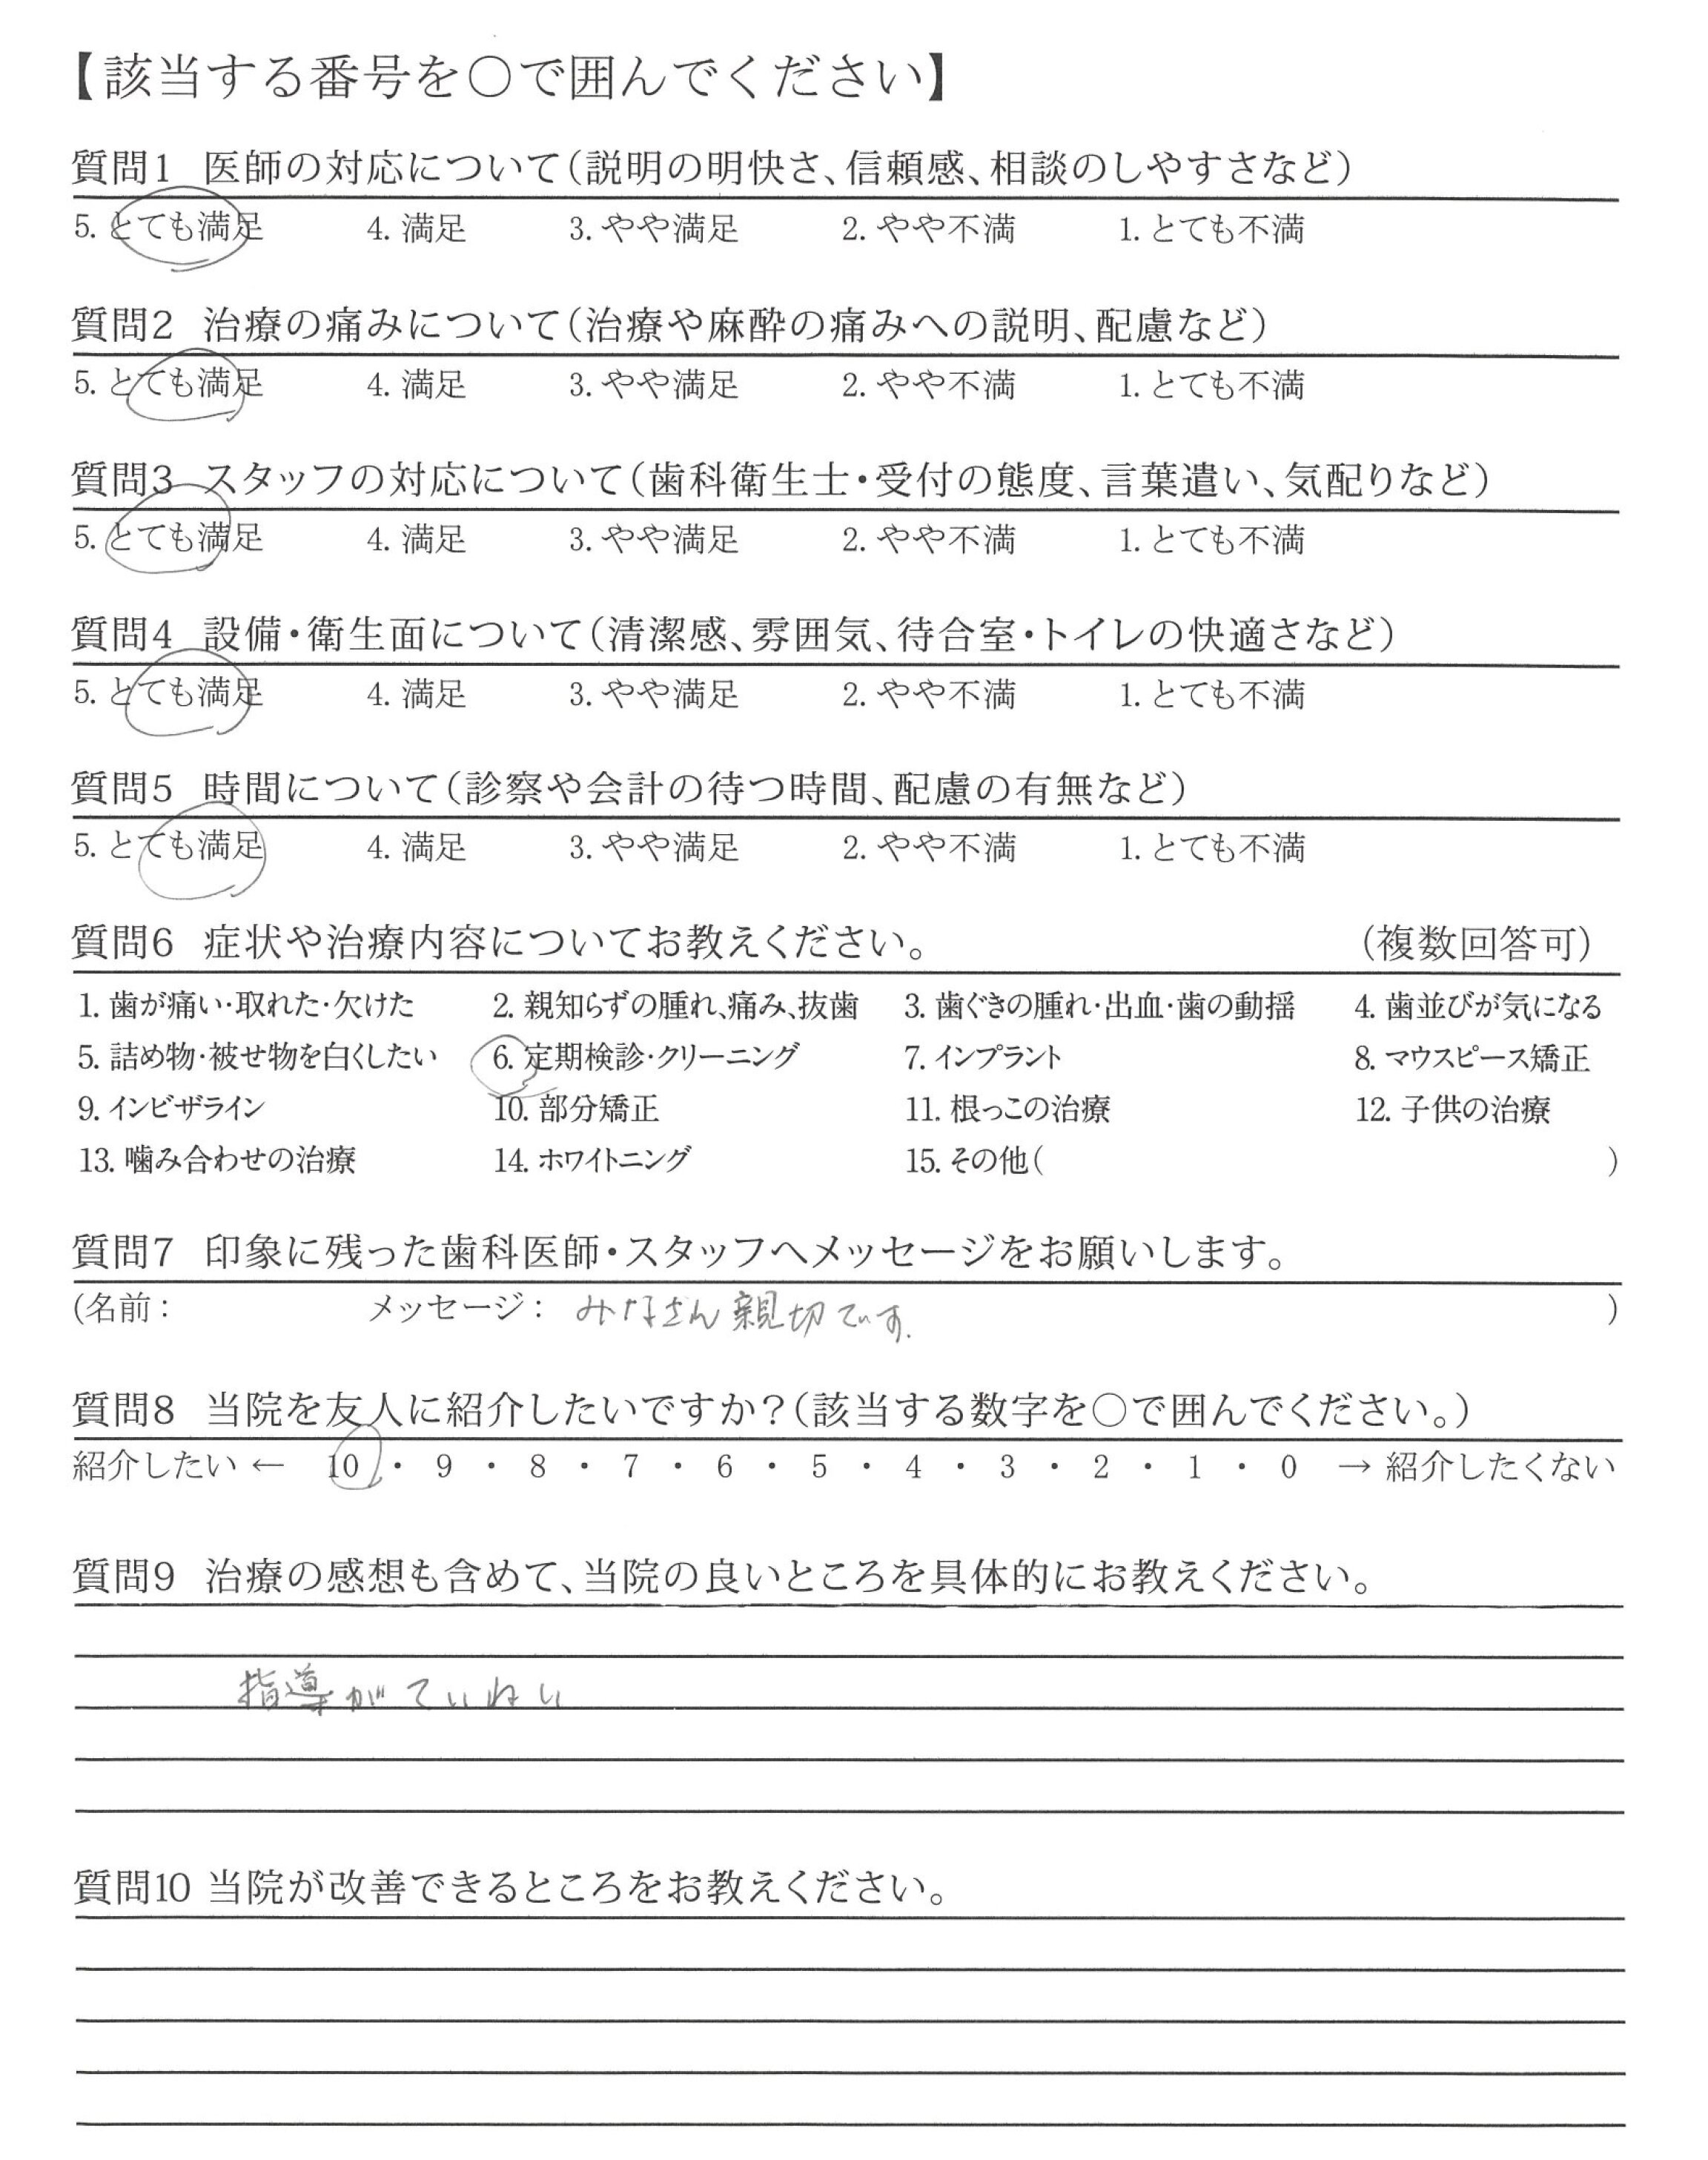 【該当する番号を○で囲んでください】
質問1 医師の対応について(説明の明快さ、信頼感、相談のしやすさなど)
5. とても満足 4. 満足 3. やや満足 2. やや不満 1. とても不満
質問2 治療の痛みについて(治療や麻酔の痛みへの説明、配慮など)
5. とても満足 4. 満足 3. やや満足 2. やや不満 1. とても不満
質問3 スタッフの対応について(歯科衛生士・受付の態度、言葉遣い、気配りなど)
5. とても満足 4. 満足 3. やや満足 2. やや不満 1. とても不満
質問4 設備・衛生面について(清潔感、雰囲気、待合室・トイレの快適さなど)
5. とても満足 4. 満足 3. やや満足 2. やや不満 1. とても不満
質問5 時間について(診察や会計の待つ時間、配慮の有無など)
5. とても満足 4. 満足 3. やや満足 2. やや不満 1. とても不満
質問6 症状や治療内容についてお教えください。 (複数回答可)
1. 歯が痛い・取れた・欠けた 2. 親知らずの腫れ、痛み、抜歯 3. 歯ぐきの腫れ・出血・歯の動揺 4. 歯並びが気になる
5. 詰め物・被せ物を白くしたい 6. 定期検診・クリーニング 7. インプラント 8. マウスピース矯正
9. インビザライン 10. 部分矯正 11. 根っこの治療 12. 子供の治療
13. 噛み合わせの治療 14. ホワイトニング 15. その他( )
質問7 印象に残った歯科医師・スタッフへメッセージをお願いします。
(名前: メッセージ: みなさん親切です. )
質問8 当院を友人に紹介したいですか?(該当する数字を○で囲んでください。)
紹介したい ← 10 ・ 9 ・ 8 ・ 7 ・ 6 ・ 5 ・ 4 ・ 3 ・ 2 ・ 1 ・ 0 → 紹介したくない
質問9 治療の感想も含めて、当院の良いところを具体的にお教えください。
指導がていねい
質問10 当院が改善できるところをお教えください。